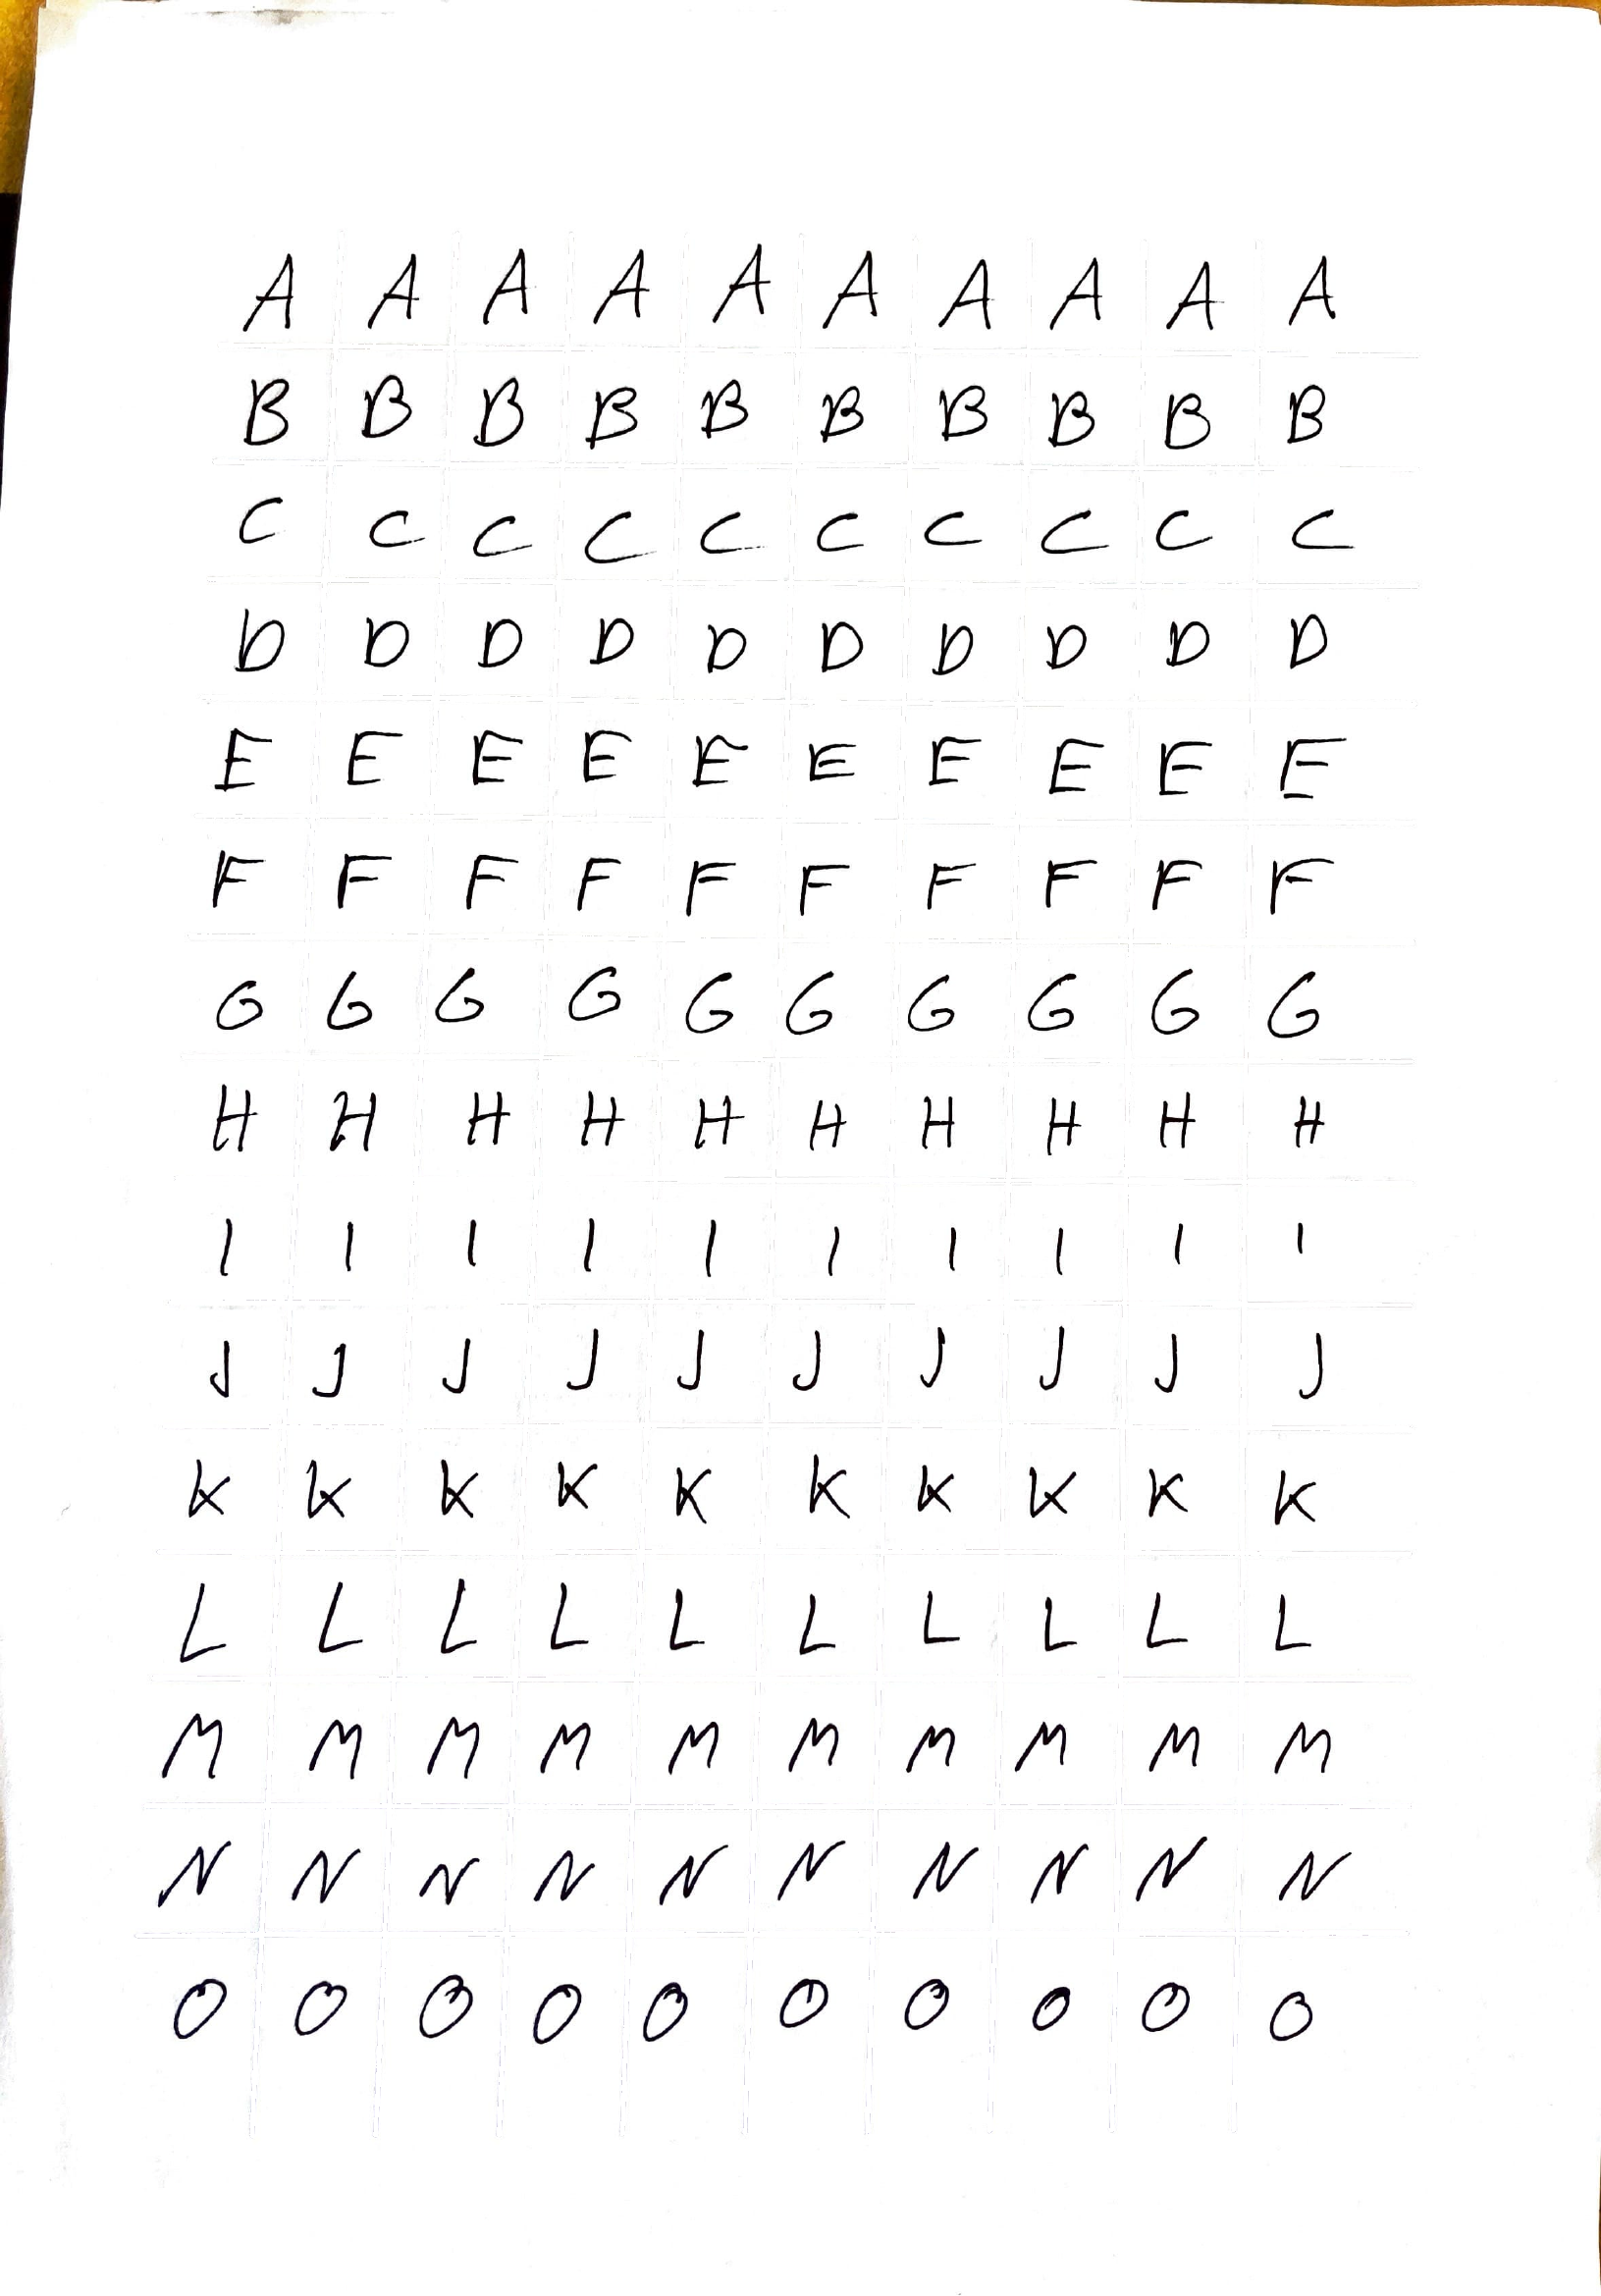 A A A A A A A A A A
B B B B B B B B B B
C C C C C C C C C C
D D D D D D D D D D
E E E E E E E E E E
F F F F F F F F F F
G G G G G G G G G G
H H H H H H H H H H
I I I I I I I I I I
J J J J J J J J J J
K K K K K K K K K K
L L L L L L L L L L
M M M M M M M M M M
N N N N N N N N N N
O O O O O O O O O O